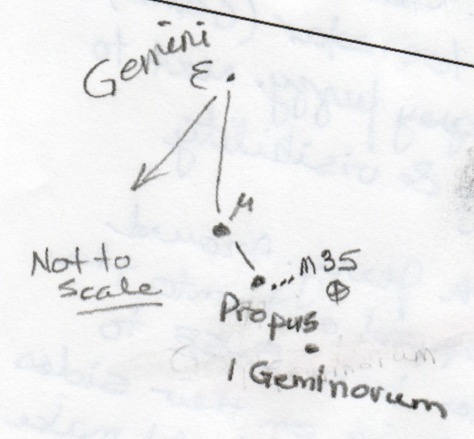 Gemini
ε
μ
Not to
Scale
M35
Propus
1 Geminorum